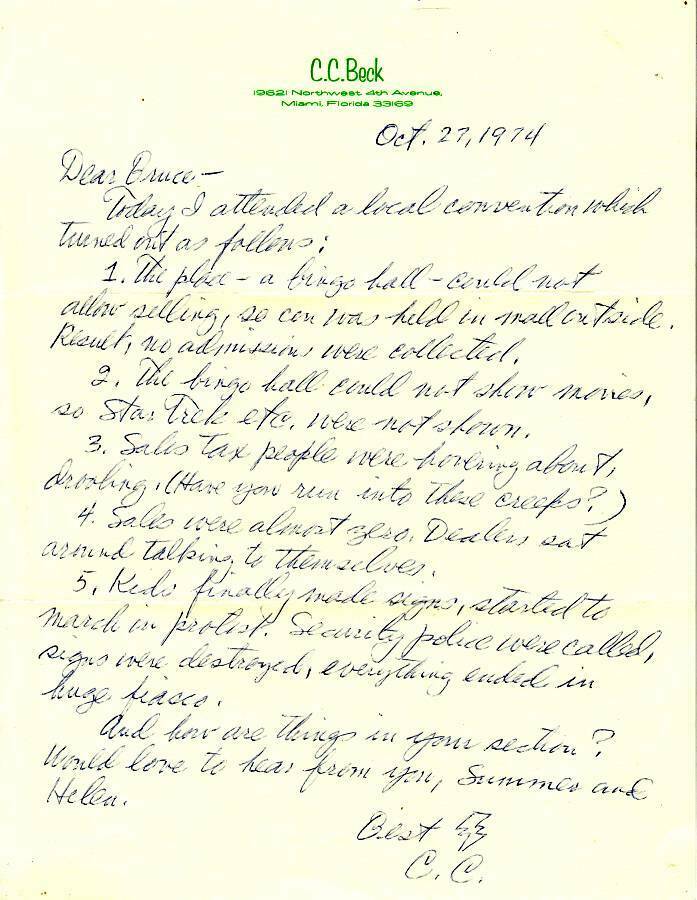 C.C. Beck
19621 Northwest 4th Avenue,
Miami, Florida 33169
Oct. 27, 1974
Dear Bruce —
Today I attended a local convention which
turned out as follows:
1. The place - a bingo hall - could not
allow selling, so con was held in mall outside.
Result, no admissions were collected.
2. The bingo hall could not show movies,
so Star Trek etc. were not shown.
3. Sales tax people were hovering about,
drooling. (Have you run into these creeps?)
4. Sales were almost zero. Dealers sat
around talking to themselves.
5. Kids finally made signs, started to
march in protest. Security police were called,
signs were destroyed, everything ended in
huge fiasco.
And how are things in your section?
Would love to hear from you, Summer and
Helen.
Best
C.C.